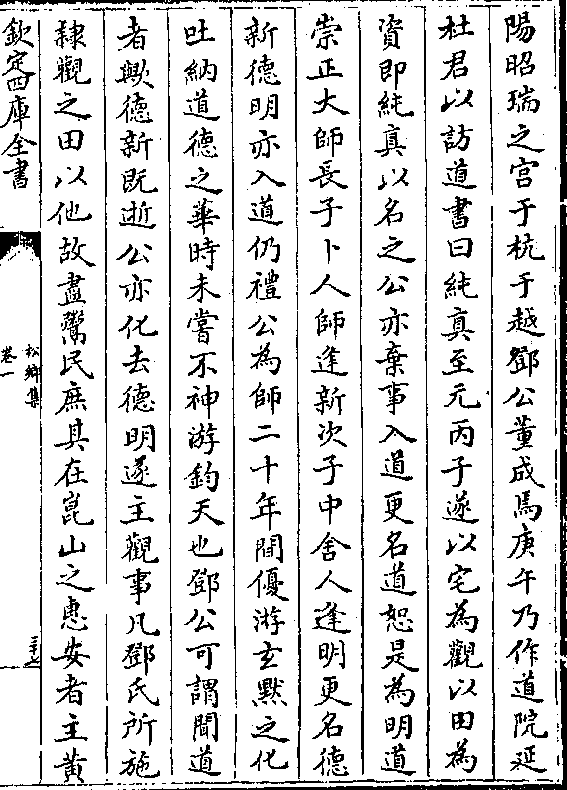 陽昭瑞之宫于杭于越鄧公董成焉庚午乃作道院延
杜君以訪道書曰純真至元丙子遂以宅為觀以田為
資即純真以名之公亦棄事入道更名道恕是為明道
崇正大師長子卜人師逢新次子中舍人逢明更名德
新德明亦入道仍禮公為師二十年間優游玄默之化
吐納道德之華時未嘗不神游鈞天也鄧公可謂聞道
者歟德新既逝公亦化去德明遂主觀事凡鄧氏所施
隸觀之田以他故盡鬻民庶其在崑山之惠安者主黄
欽定四庫全書
松鄉集
卷一
三十七